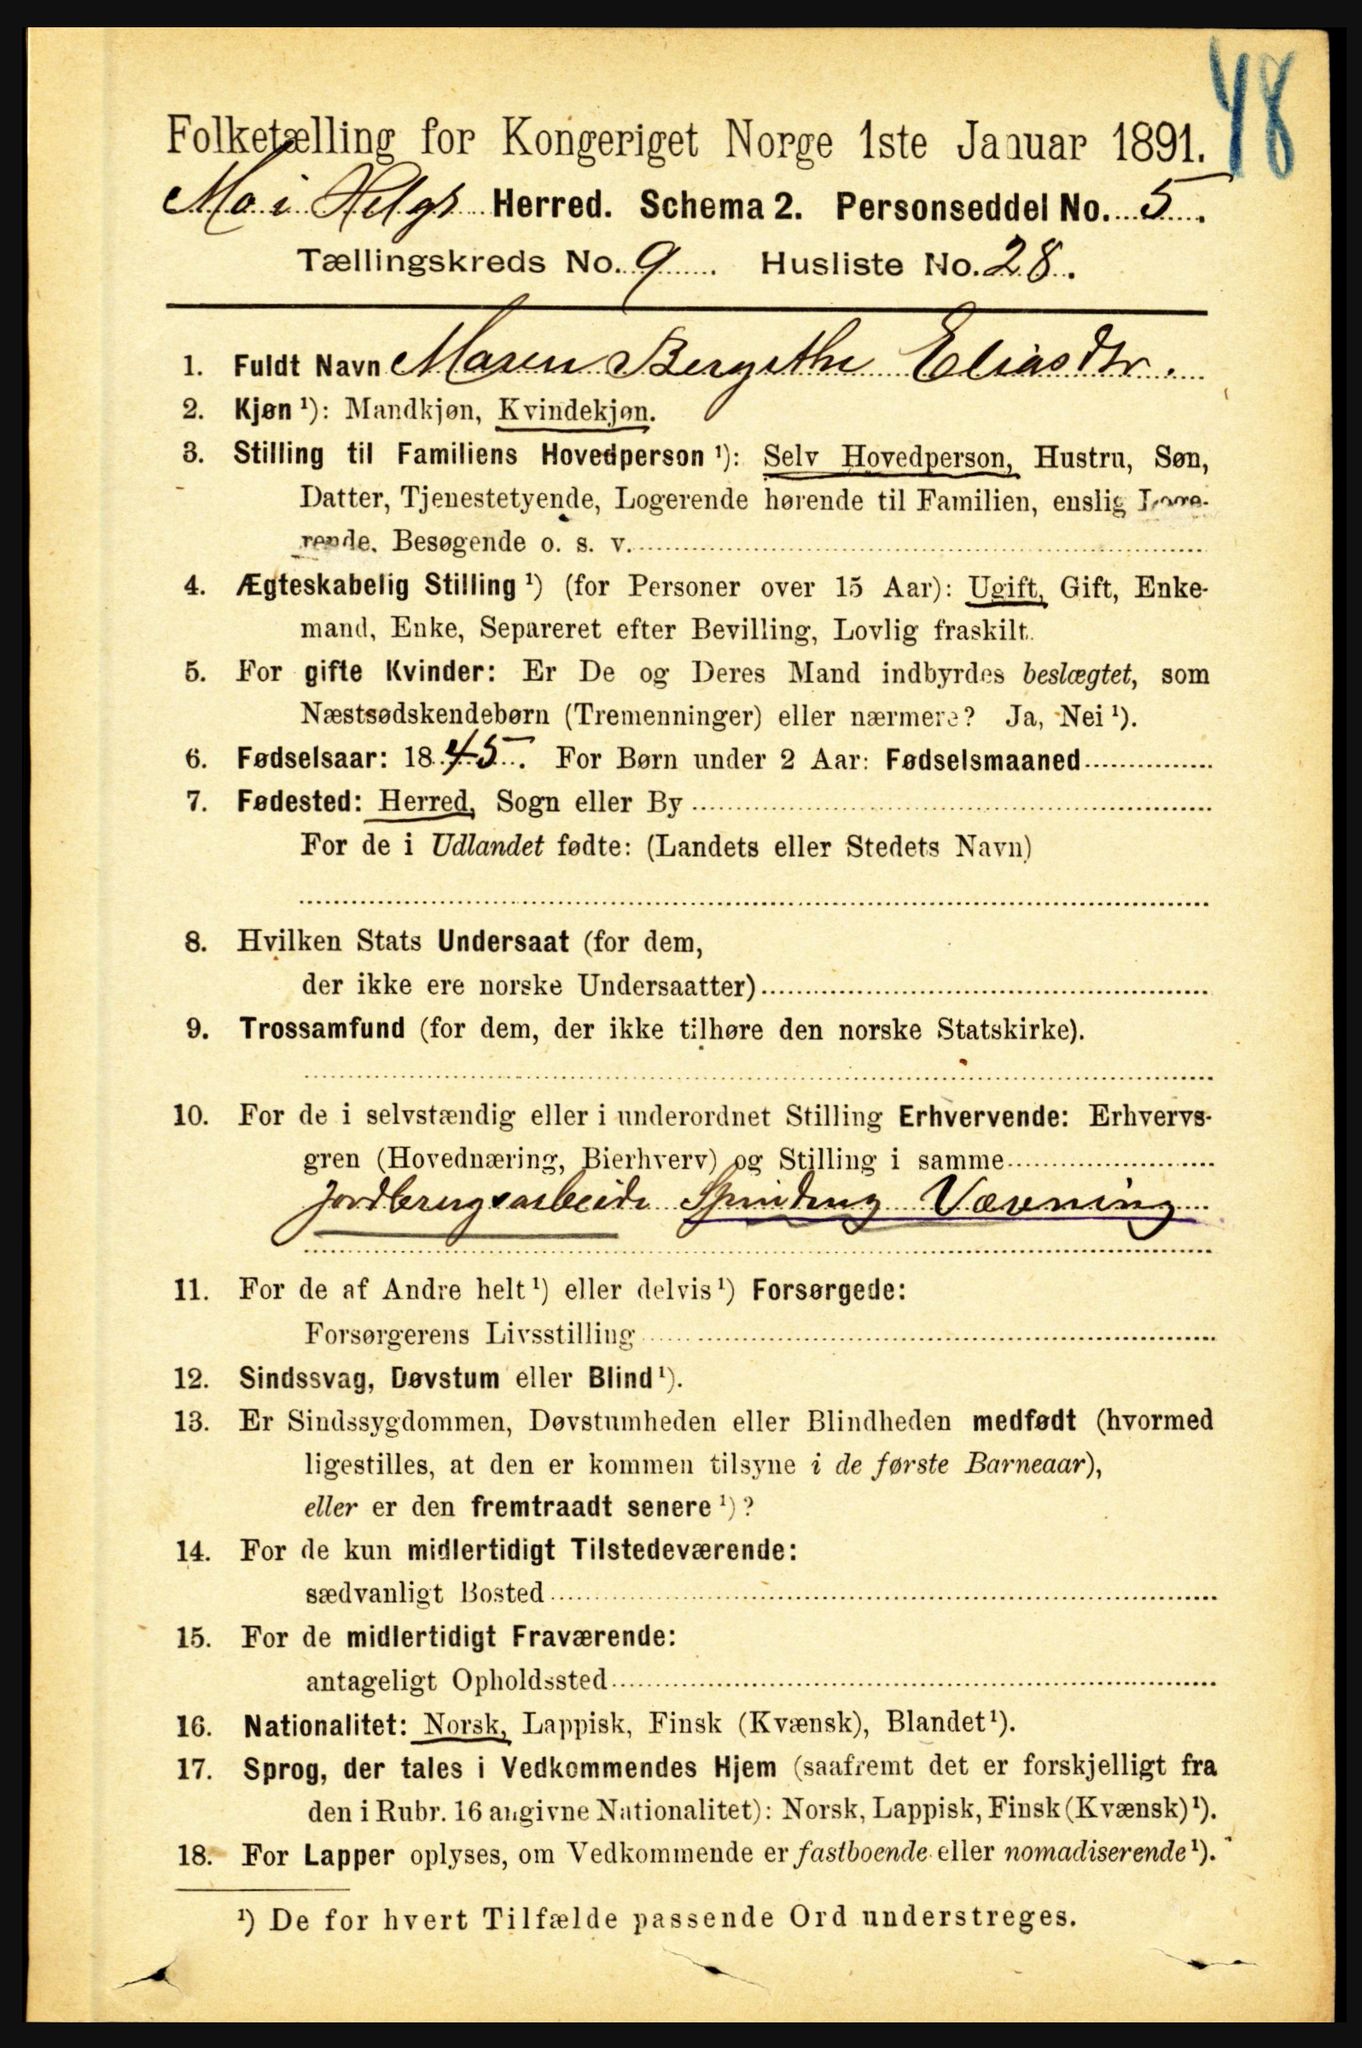 48
Folketælling for Kongeriget Norge 1ste Januar 1891.
Mo i Helgl Herred. Schema 2. Personseddel No. 5.
Tællingskreds No. 9. Husliste No. 28.
1. Fuldt Navn Maren Bergithe Eliasdtr.
2. Kjøn ¹): Mandkjøn, Kvindekjøn.
3. Stilling til Familiens Hovedperson ¹): Selv Hovedperson, Hustru, Søn,
Datter, Tjenestetyende, Logerende hørende til Familien, enslig Loge-
rende, Besøgende o. s. v.
4. Ægteskabelig Stilling ¹) (for Personer over 15 Aar): Ugift, Gift, Enke-
mand, Enke, Separeret efter Bevilling, Lovlig fraskilt.
5. For gifte Kvinder: Er De og Deres Mand indbyrdes beslægtet, som
Næstsødskendebørn (Tremenninger) eller nærmere? Ja, Nei ¹).
6. Fødselsaar: 1845. For Børn under 2 Aar: Fødselsmaaned
7. Fødested: Herred, Sogn eller By
For de i Udlandet fødte: (Landets eller Stedets Navn)
8. Hvilken Stats Undersaat (for dem,
der ikke ere norske Undersaatter)
9. Trossamfund (for dem, der ikke tilhøre den norske Statskirke).
10. For de i selvstændig eller i underordnet Stilling Erhvervende: Erhvervs-
gren (Hovednæring, Bierhverv) og Stilling i samme
Jordbrugsarbeide Spinding Vævning
11. For de af Andre helt ¹) eller delvis ¹) Forsørgede:
Forsørgerens Livsstilling
12. Sindssvag, Døvstum eller Blind ¹).
13. Er Sindssygdommen, Døvstumheden eller Blindheden medfødt (hvormed
ligestilles, at den er kommen tilsyne i de første Barneaar),
eller er den fremtraadt senere ¹)?
14. For de kun midlertidigt Tilstedeværende:
sædvanligt Bosted
15. For de midlertidigt Fraværende:
antageligt Opholdssted
16. Nationalitet: Norsk, Lappisk, Finsk (Kvænsk), Blandet ¹).
17. Sprog, der tales i Vedkommendes Hjem (saafremt det er forskjelligt fra
den i Rubr. 16 angivne Nationalitet): Norsk, Lappisk, Finsk (Kvænsk) ¹).
18. For Lapper oplyses, om Vedkommende er fastboende eller nomadiserende ¹).
¹) De for hvert Tilfælde passende Ord understreges.